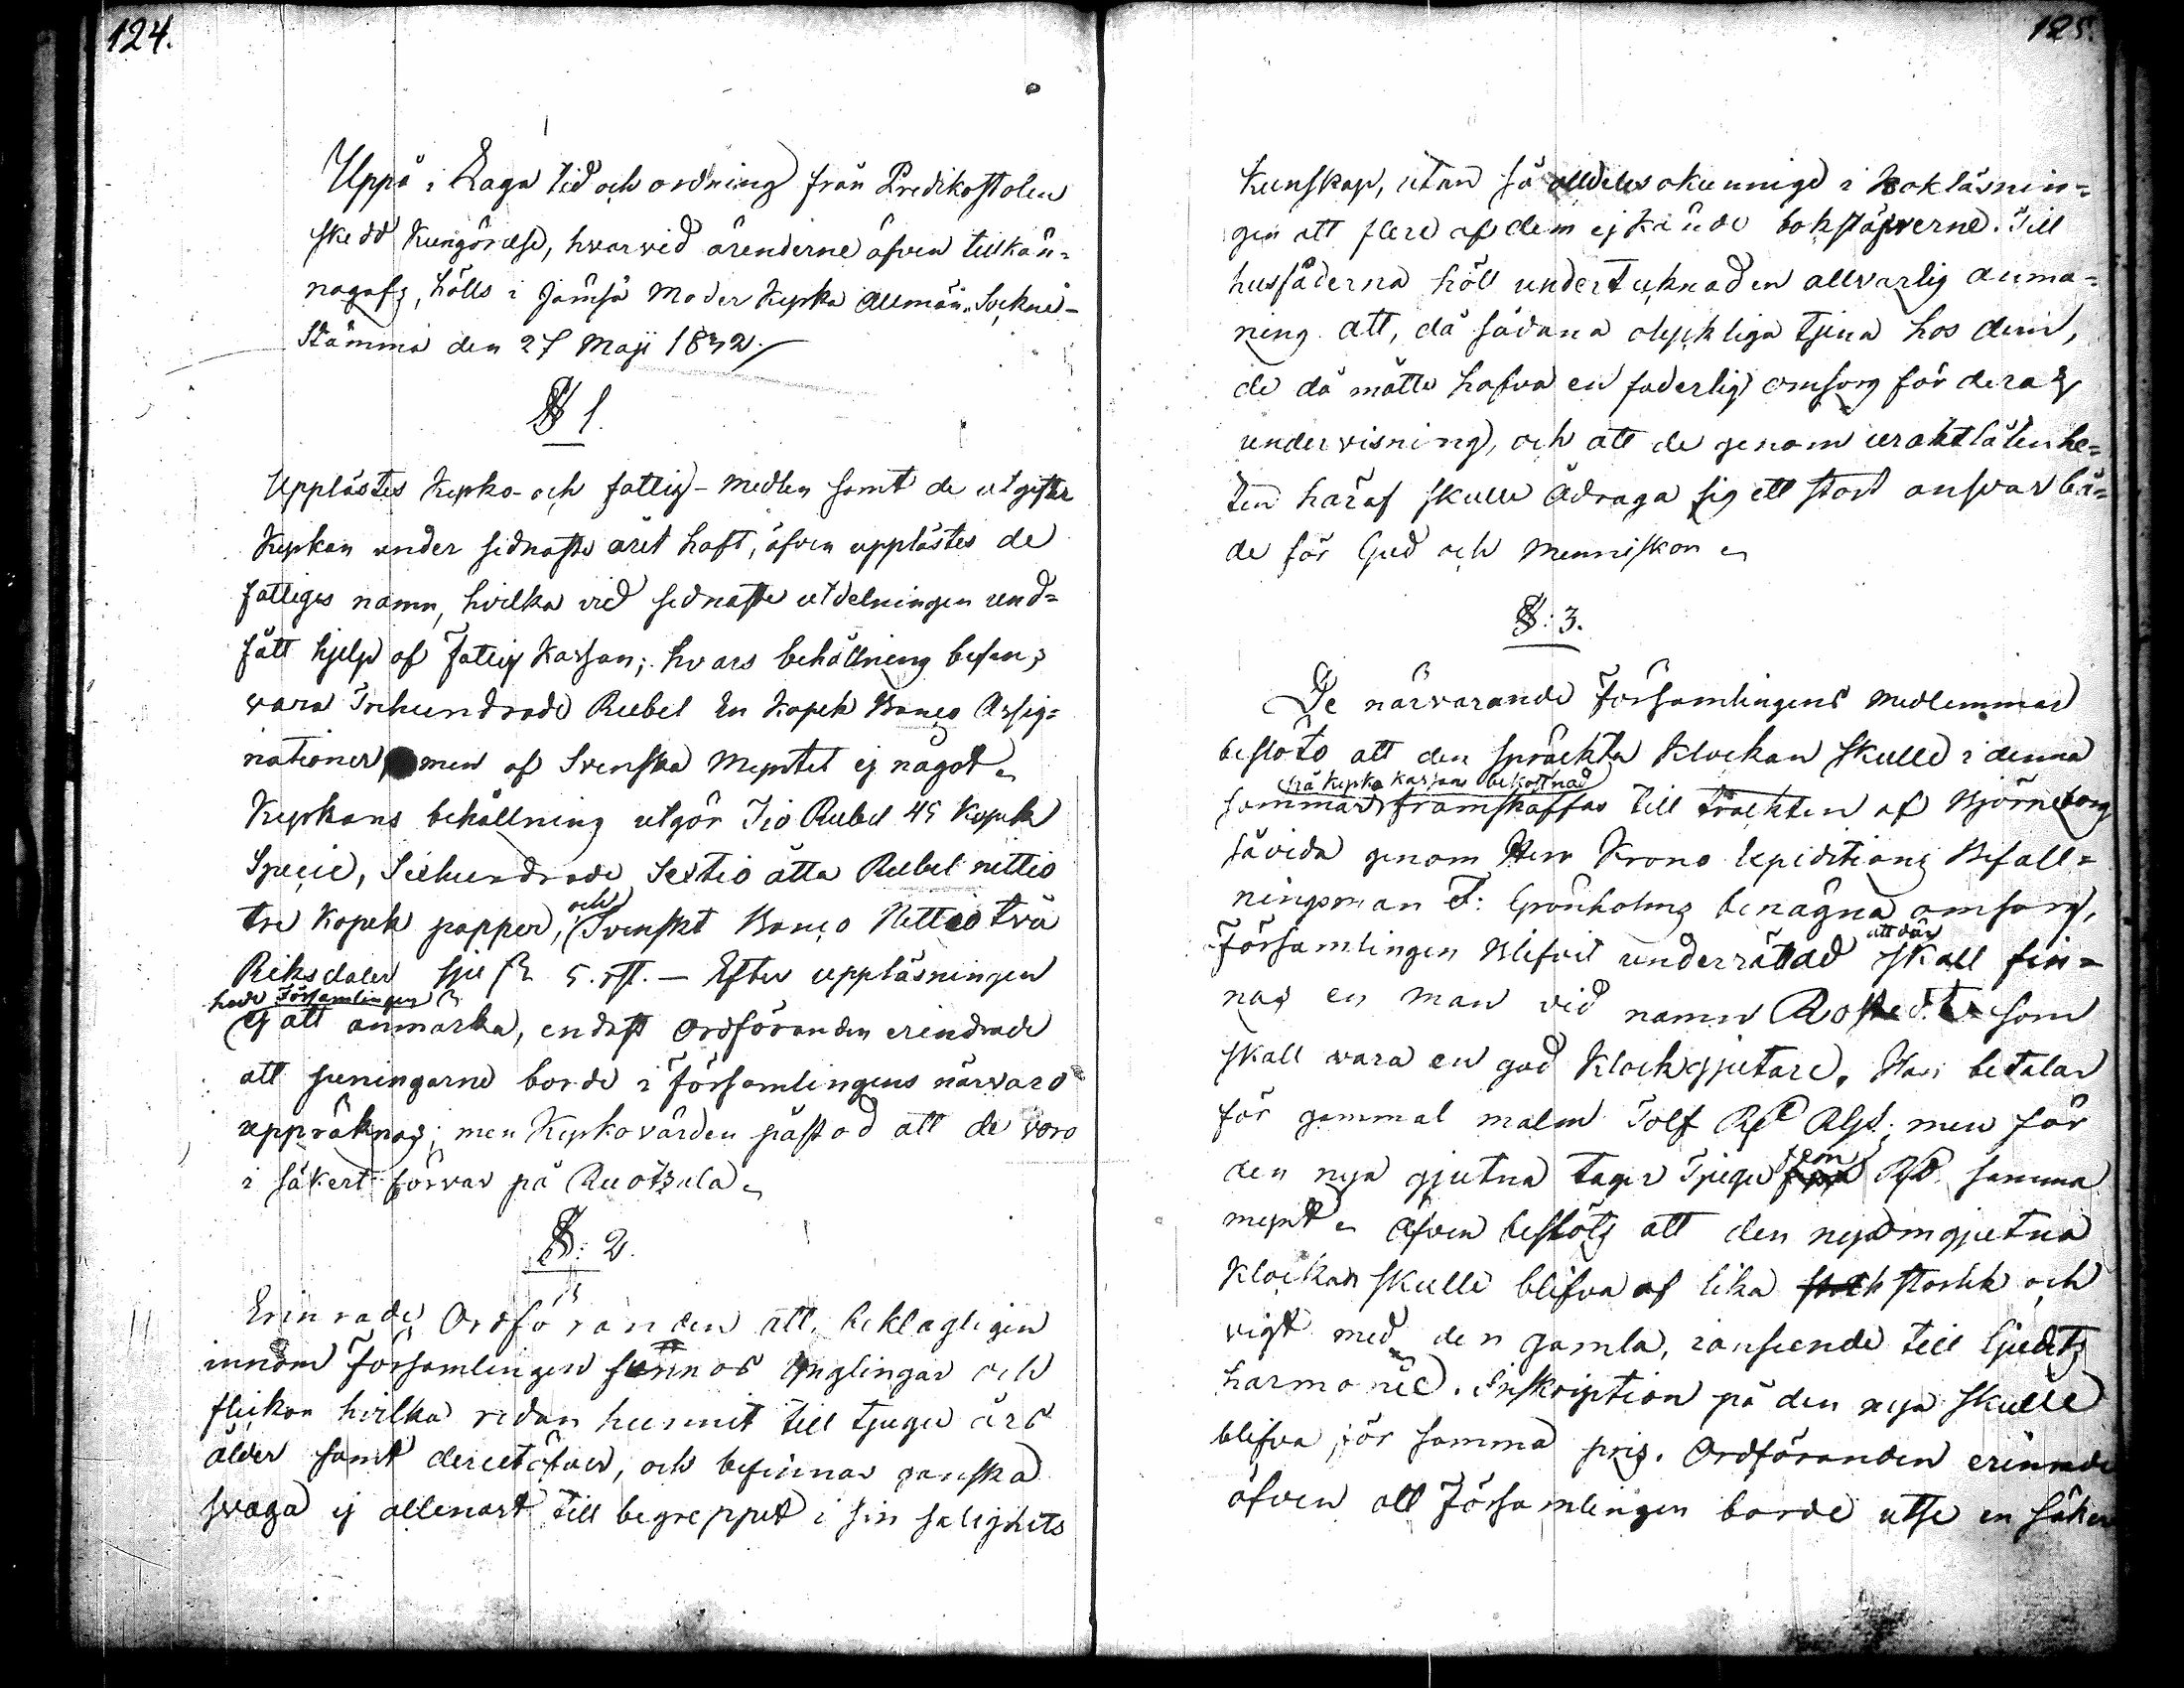 124.
Uppå i Laga tid och ordning från Predikostolen
skedd Kungörelse, hwarvid ärenderne äfven tillkän-
nagafs, hölls i Jämsä Moder Kyrka Allmän Sockne-
Stämma den 27 Maji 1832.
§ 1.
Upplästes Kyrko- och fattig-medlen samt de utgifter
Kyrkan under sednaste året haft, äfven upplästes de
fattiges namn, hvilka vid sednaste utdelningen und-
fått hjelp af Fattig Kassan; hvars behållning befans
vara Trehundrade Rubel En Kopek Banco Assig-
nationer, men af Svenska Myntet ej något.
Kyrkans behållning utgör Tio Rubel 45 Kopek
Specie, Sexhundrade Sextio åtta Rubel nittio
och
tre Kopek papper, Svenskt Banco Nittio två
Riksdaler sju ß 5. rst. — Efter uppläsningen
hade Församlingen
ej att anmärka, endast Ordföranden erindrade
att peningarne borde i församlingens närvaro
uppräknas; men Kyrkovärden påstod att de voro
i säkert förvar på Ruotsula.
§: 2.
Erinrade Ordföranden att beklagligen
innom församlingen funnos Ynglingar och
flickor hvilka redan hunnit till tjugu års
ålder samt derutöfver, och befinnas ganska
svaga ej allenast till begreppet i sin salighets
125.
Kunskap, utan så alldeles okunnige i Bokläsnin-
gen att flere af dem ej kände bokstäfverne. Till
husfäderna höll undertecknad en allvarlig anma-
ning att, då sådana olyckliga tjena hos dem,
de då måtte hafva en faderlig omsorg för deras
undervisning, och att de genom uraktlåtenhe-
ten häraf skulle ådraga sig ett stort answar bå-
de för Gud och Menniskor.
§: 3.
De närvarande Församlingens Medlemmar
beslöto att den spräckta Klockan skulle i denna
på Kyrko Kassans bekostnad
sommar framskaffas till trackten af Björneborg
såvida genom Herr Krono Expeditions Befall-
ningsman F: Grönholms benägna omsorg,
Församlingen blifvit underrättad att där skall fin-
nas en man vid namn Rostedt som
skall vara en god Klockgjutare. Han betalar
för gammal malm Tolf Rsd Rgs; men för
den nya gjutna tager Tjugu fem Rsd. samma
mynt. Äfven beslöts att den nya omgjutna
Klockan skulle blifva af lika storlek och
vigt med den gamla, i anseende till ljudets
harmonie. Inskription på den nya skulle
blifva för samma pris. Ordföranden erinrade
äfven att Församlingen borde utse en säker